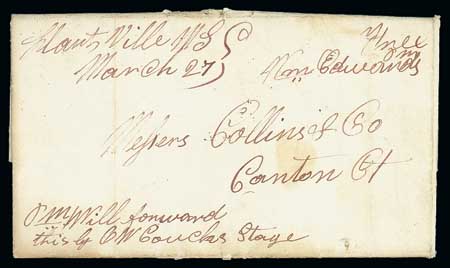 Hantsville NS
March 27
Free
Wm Edwards pm
Messers Collins & Co
Canton Ct
P.M. Will forward
this by O W Couchs Stage